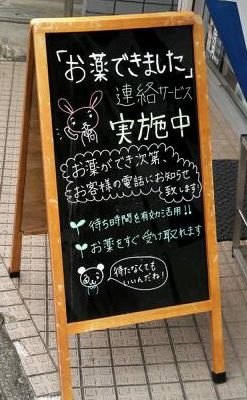 「お薬できました」
連絡サービス
実施中
お薬ができ次第、
お客様の電話にお知らせ
致します!
待ち時間を有効活用!!
お薬をすぐ受け取れます
待たなくても
いいんだね!